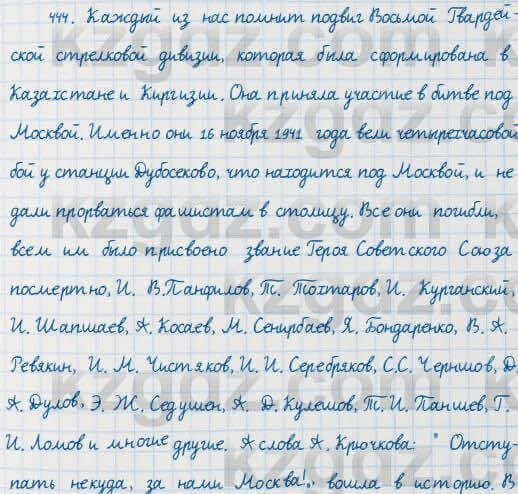 444. Каждый из нас помнит подвиг Восьмой Гвардей-
ской стрелковой дивизии, которая была сформирована в
Казахстане и Киргизии. Она приняла участие в битве под
Москвой. Именно они 16 ноября 1941 года вели четырехчасовой
бой у станции Дубосеково, что находится под Москвой, и не
дали прорваться фашистам в столицу. Все они погибли,
всем им было присвоено звание Героя Советского Союза
посмертно, И. В. Панфилов, Т. Тохтаров, И. Курганский,
И. Шапшаев, А. Косаев, М. Сенгирбаев, Я. Бондаренко, В. А.
Ревякин, И. М. Чистяков, И. И. Серебряков, С.С. Чернишов, Д.
А. Дулов, Э. Ж. Седушен, А. Д. Кулешов, Т. И. Паншев, Г.
И. Ломов и многие другие. А слова А. Крючкова: " Отсту-
пать некуда, за нами Москва!„ вошла в историю. В